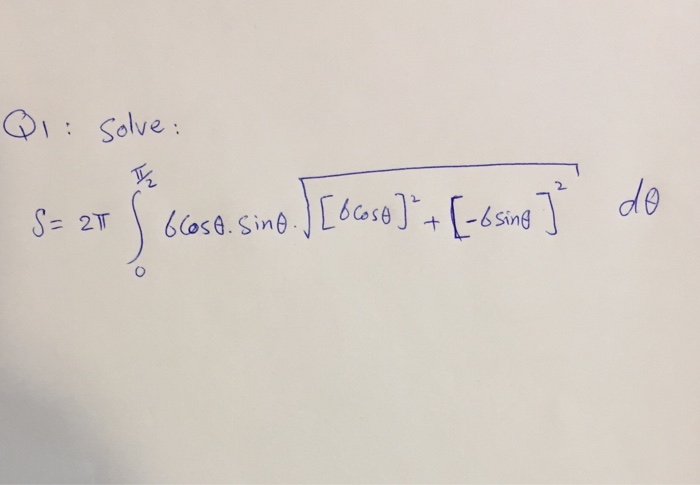 Q1: Solve:
S = 2π ∫₀^{π/2} 6 Cosθ. Sinθ. √([6 Cosθ]² + [-6 sinθ]²) dθ